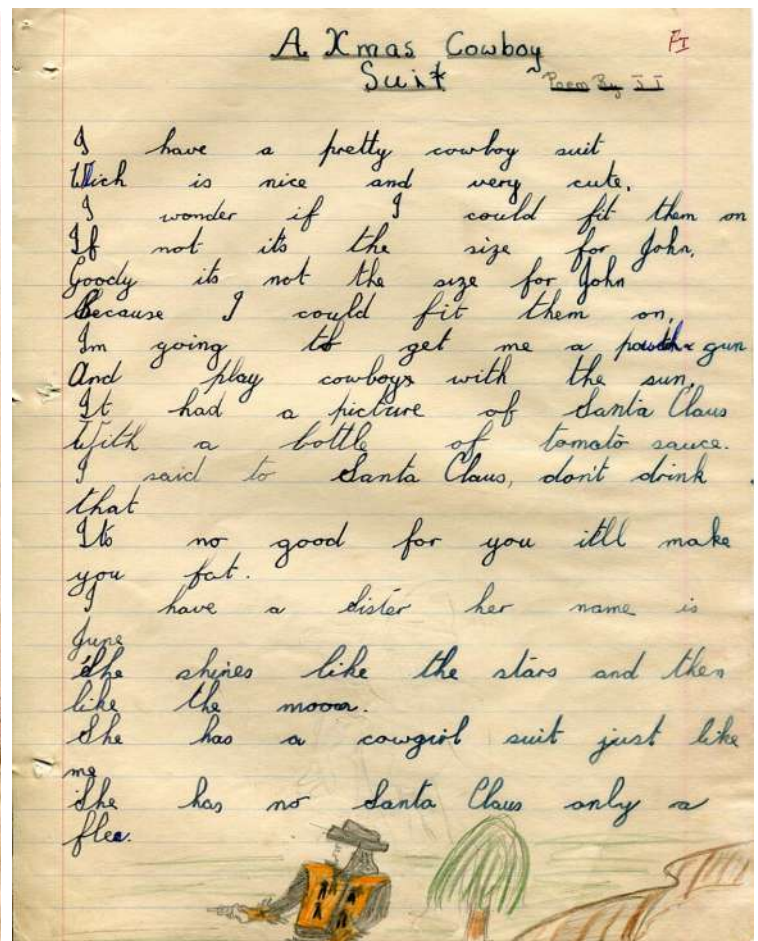 A Xmas Cowboy
FI
Suit
Poem By JJ
I have a pretty cowboy suit
Wich is nice and very cute.
I wonder if I could fit them on
If not its the size for John,
Goody its not the size for John
Because I could fit them on,
Im going to get me a gun
And play cowboys with the sun,
It had a picture of Santa Claus
With a bottle of tomato sauce.
I said to Santa Claus, don't drink
that
Its no good for you itll make
you fat.
I have a sister her name is
June
She shines like the stars and then
like the moon.
She has a cowgirl suit just like
me
She has no Santa Claus only a
flea.